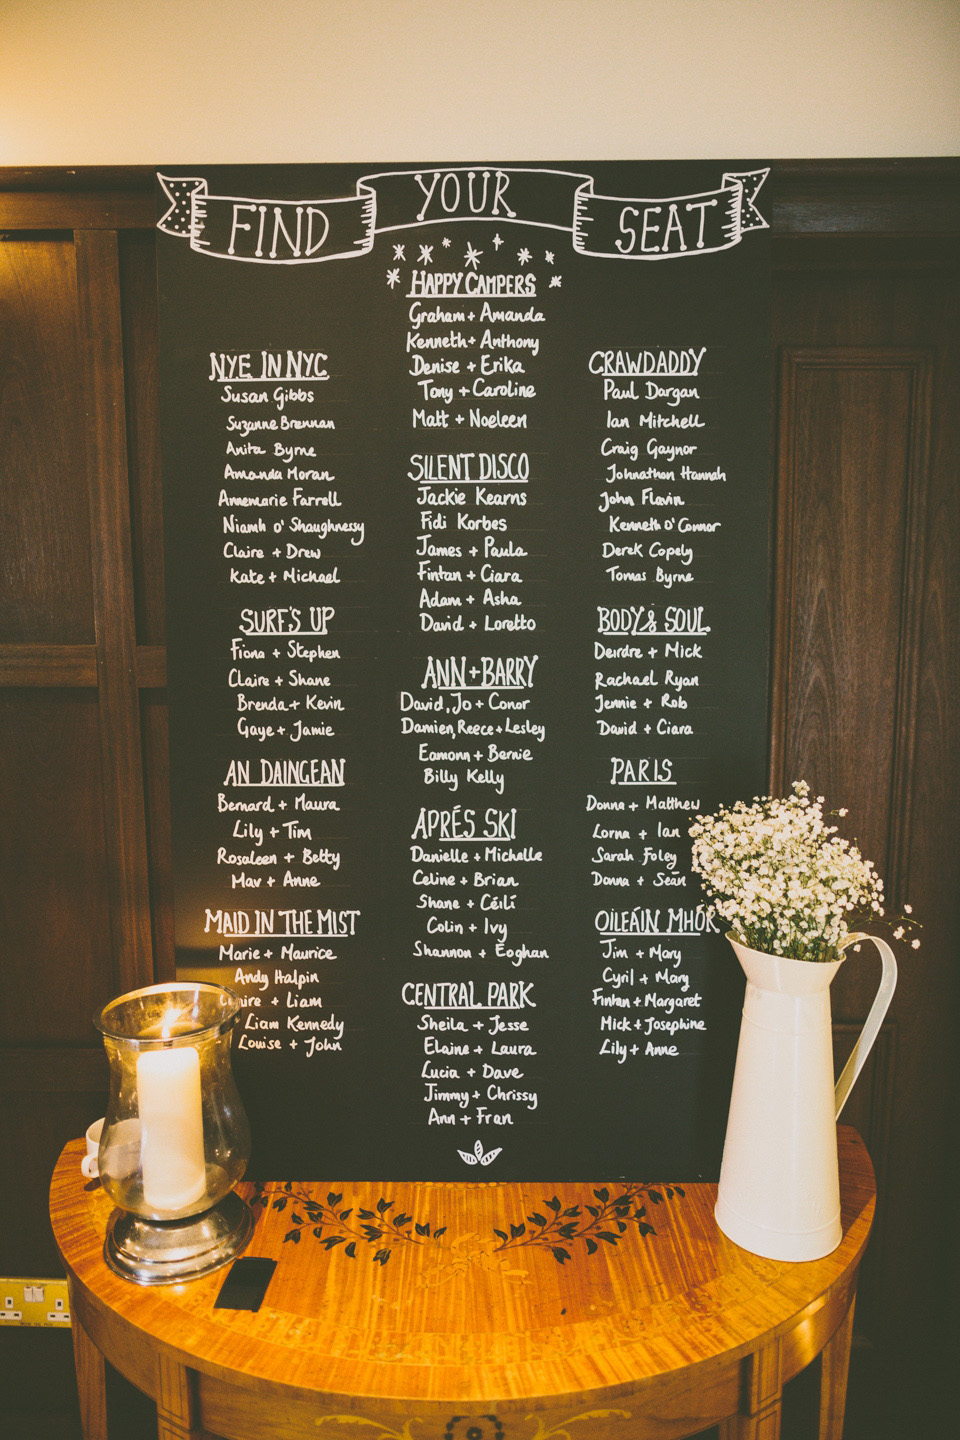 FIND YOUR SEAT
NYE IN NYC
Susan Gibbs
Suzanne Brennan
Anita Byrne
Amanda Moran
Annemarie Farrell
Niamh O'Shaughnessy
Claire + Drew
Kate + Michael
SURF'S UP
Fiona + Stephen
Claire + Shane
Brenda + Kevin
Gaye + Jamie
AN DAINGEAN
Bernard + Maura
Lily + Tim
Rosaleen + Betty
Mav + Anne
MAID IN THE MIST
Marie + Maurice
Andy Halpin
+ Liam
Liam Kennedy
Louise + John
HAPPY CAMPERS
Graham + Amanda
Kenneth + Anthony
Denise + Erika
Tony + Caroline
Matt + Noeleen
SILENT DISCO
Jackie Kearns
Fidi Korbes
James + Paula
Fintan + Ciara
Adam + Asha
David + Loretto
ANN + BARRY
David, Jo + Conor
Damien, Reece + Lesley
Eamonn + Bernie
Billy Kelly
APRÉS SKI
Danielle + Michelle
Celine + Brian
Shane + Céilí
Colin + Ivy
Shannon + Eoghan
CENTRAL PARK
Sheila + Jesse
Elaine + Laura
Lucia + Dave
Jimmy + Chrissy
Ann + Fran
CRAWDADDY
Paul Dargan
Ian Mitchell
Craig Gaynor
Johnathan Hannah
John Flavin
Kenneth O'Connor
Derek Copely
Tomas Byrne
BODY & SOUL
Deirdre + Mick
Rachael Ryan
Jennie + Rob
David + Ciara
PARIS
Donna + Matthew
Lorna + Ian
Sarah Foley
Donna + Seán
OILEÁIN MHÓR
Jim + Mary
Cyril + Mary
Fintan + Margaret
Mick + Josephine
Lily + Anne